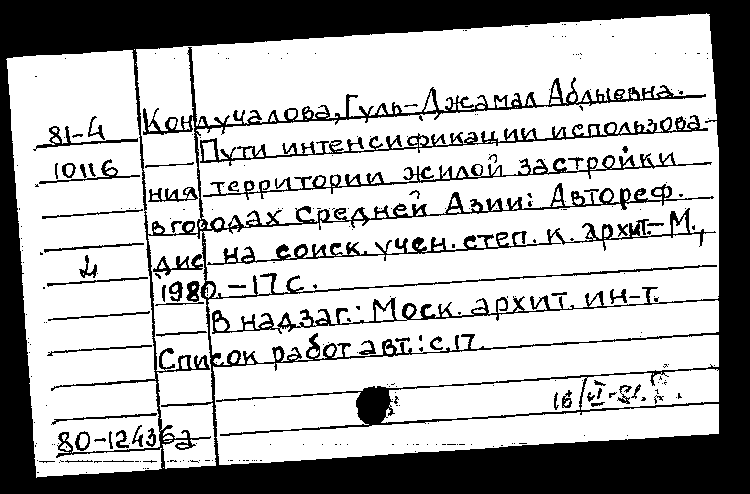 81-4
10116
Кондучалова, Гуль-Джамал Абдыевна.
Пути интенсификации использова-
ния территории жилой застройки
в городах Средней Азии: Автореф.
дис. на соиск. учен. степ. к. архит.-М.,
1980.-17с.
В надзаг.: Моск. архит. ин-т.
Список работ авт.: с.17.
80-12436а